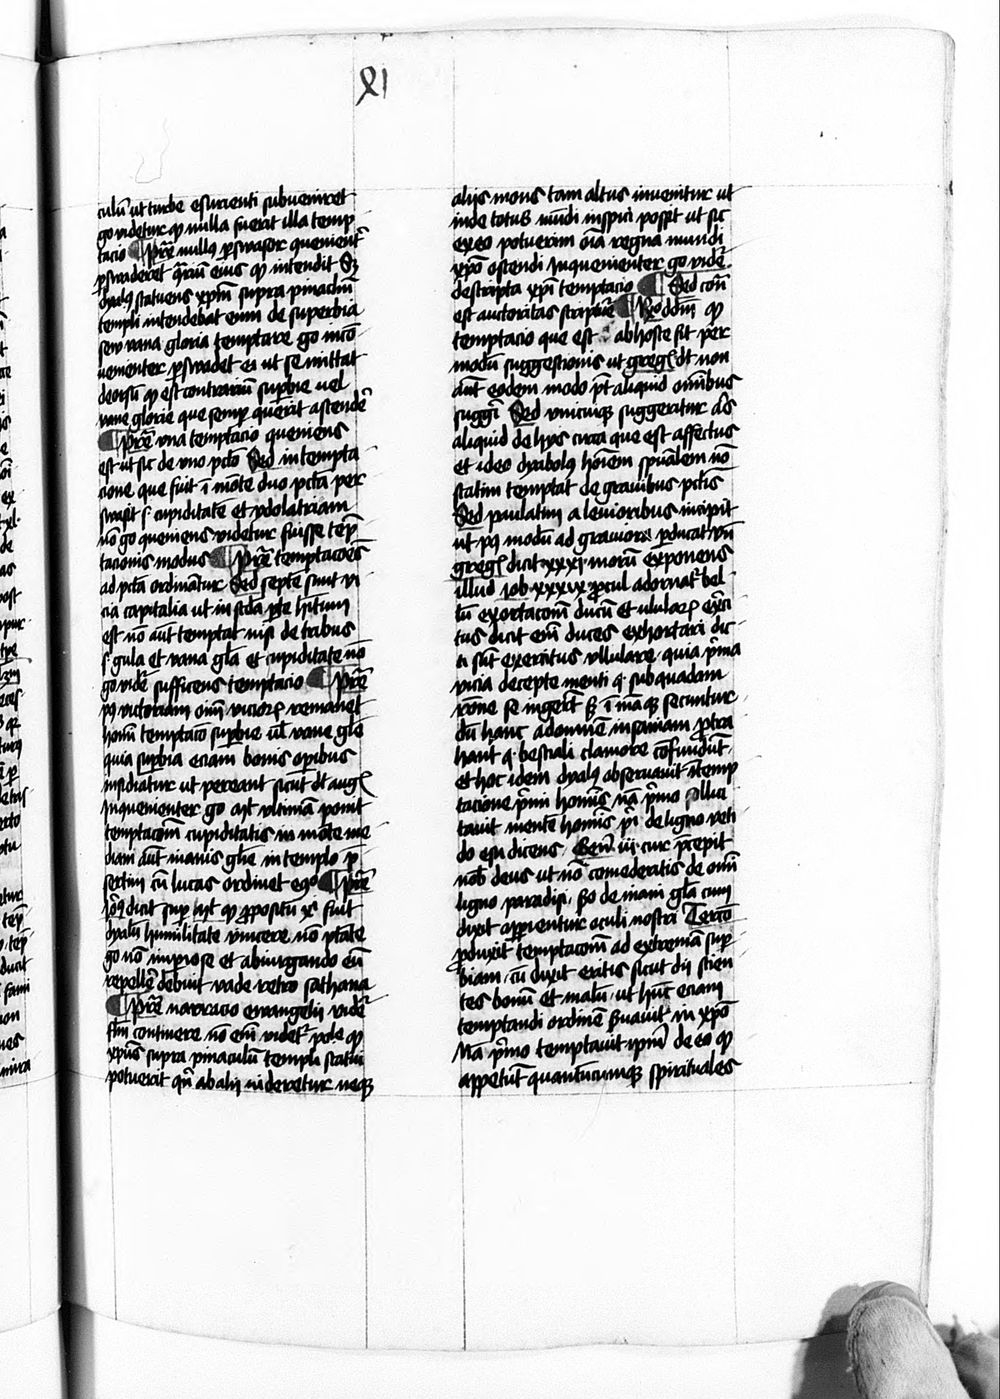 XI
culū ut turbe esurienti subueniret
go videtur qͥ nulla fuerit illa temp
tacio ¶ Pre͛ nullꝰ ꝑswasor ꝯuenient͛
ꝑswaderet ꝯrͣriū eius qͥ intendit Sꝫ
dyabꝰ statuens xpm̄ supra pinaclm̄
templi intendebat eum de superbia
seu vana gloria temptare go incō
uenienter ꝑswadet ei ut se mittat
deorsū qͥ est contrariū suꝑbie uel
vane glorie que semꝑ querit ascende͛
¶ Pre͛ vna temptacio ꝯueniens
est ut sit de vno pctō Sed in tempta
cione que fuit ī mōte duo pctā per
swasit .s. cupiditatē et ydolatriam
nō go ꝯueniens videtur fuisse tēp
tacionis modus ¶ Pre͛ temptacōēs
ad pctā ordinātur Sed septē sunt vi
cia capitalia ut in scdā ꝑte hitum
est nō aūt temptat nisi de tribus
.s. gula et vana glā et cupiditate nō
go vide͛ sufficiens temptacio ¶ Pre͛
pꝰ victoriam oīm vicioꝝ remanet
homī temptacio suꝑbie ul̄ vane gle͛
quia suꝑbia eciam bonis oꝑibus
insidiatur ut pereant sicut dt augꝰ
Inꝯuenienter go mt̄ vltimā ponit
temptacōm cupiditatis in mōte me
diam aūt inanis glīe in templo p̄
sertim cū lucas ordinet ego ¶ Pre͛
iōꝰ dicit suꝑ mt̄ qͥ ꝓpositū xꝰ fuit
dyabm̄ humilitate vincere nō ptāte
go nō imꝑiose et obiurgando eū
repelle͛ debuit vade retro sathana
¶ Pre͛ narracio ewangelii vide͛
flm̄ continere nō enī videtꝰ pōle qͥ
xpūs supra pinaculū templi statui
potuerit qn̄ ab alijs uideretur neqꝫ
alijs mons tam altus inuenitur ut
inde totus mūdi inspici possit ut sic
ex eo potuerim oīa regna mundi
xpō ostendi Inꝯuenienter go vide͛
descripta xpi temptacio ¶ Sed con̄
est auctoritas scripture ¶ Rō dd̄m qͥ
temptacio que est ab hoste fit per
modū suggestionis ut gregꝰ dt non
aūt eodem modo pt aliquid omībus
suggi͛ Sed vnicuiqꝫ suggeritur a͛s
aliquid de hijs circa que est affectus
et ideo dyabolꝰ hoīem spūalem nō
statim temptat de grauibus pctīs
Sed paulatim a leuioribus incipit
ut pꝰ modū ad grauiora ꝑducat vn̄
gregꝰ dicit xxxi morū exponens
illud iob xxxix ꝓcul adoratꝰ bel
lū exortacōm ducū et ululatꝰ exci
tus dicit enī duces exhortari dic
ti sūt exercitus vllulare quia pͥma
vicia decepte menti qͣ sub quadam
rōne se ingerūt sꝫ ī mͣa qꝫ secuntur
dū hanc ad omnē insaniam ꝓtra
hunt qͣ bestiali clamore cōfundūt
et hoc idem dyabꝰ obseruauit ī temp
tacione pͥmi homīs nā pͥmo sollici
tauit mentē homīs pͥ de ligno veti
do esu dicens Gen̄ iii cur p̄cepit
nob̄ deus ut nō comederetis de omī
ligno paradisi sꝫo de inani glā cum
dixit aꝑientur oculi uestri Tercō
ꝓduxit temptacōm ad extremā suꝑ
biam cū dixit eritis sicut dii scien
tes bonū et malū ut hūc eciam
temptandi ordinē seruauit in xpō
Nā pͥmo temptauit ipm̄ de eo qͥ
appetūt quantūcumqꝫ spirituales